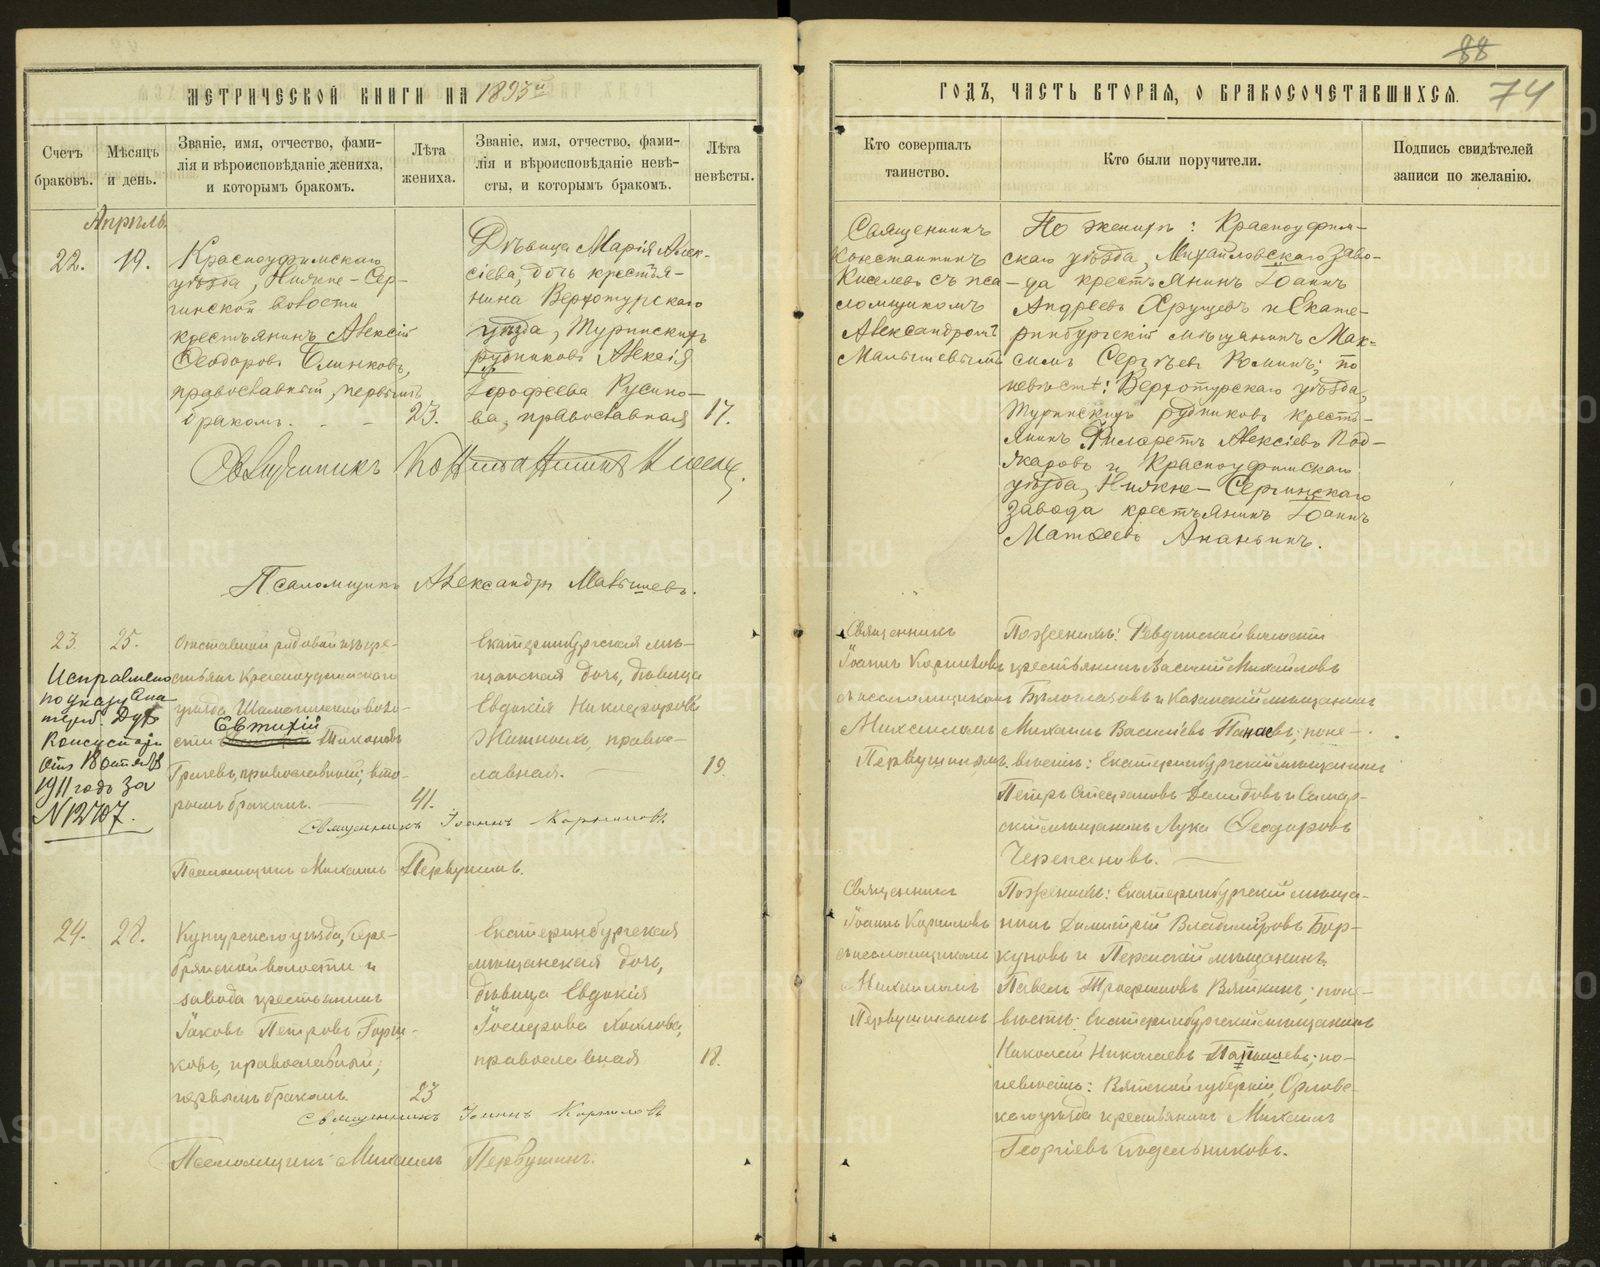 88
МЕТРИЧЕСКОЙ КНИГИ НА 1893й
ГОДЪ, ЧАСТЬ ВТОРАЯ, О БРАКОСОЧЕТАВШИХСЯ.
74
Счетъ
браковъ.
Мѣсяцъ
и день.
Званіе, имя, отчество, фами-
лія и вѣроисповѣданіе жениха,
и которымъ бракомъ.
Лѣта
жениха.
Званіе, имя, отчество, фами-
лія и вѣроисповѣданіе невѣ-
сты, и которымъ бракомъ.
Лѣта
невѣсты.
Кто совершалъ
таинство.
Кто были поручители.
Подпись свидѣтелей
записи по желанію.
Апрѣль
22.
19.
Красноуфимскаго
уѣзда, Нижне-Сер-
гинской волости
крестьянинъ Алексій
Ѳеодоровъ Блинковъ,
православный, первымъ
бракомъ.
23.
Дѣвица Марія Алек-
сіева, дочь крестья-
нина Верхотурскаго
уѣзда, Туринскихъ
рудниковъ Алексія
Ерофеева Русино-
ва, православная
17.
Священникъ
Константинъ
Киселевъ съ пса-
ломщикомъ
Александромъ
Малышевымъ
По женихѣ: Красноуфим-
скаго уѣзда, Михайловскаго заво-
да крестьянинъ Іоаннъ
Андреевъ Хрущевъ и Екате-
ринбургскій мѣщанинъ Мак-
симъ Сергѣевъ Коминъ; по
невѣстѣ: Верхотурскаго уѣзда,
Туринскихъ рудниковъ кресть-
янинъ Филаретъ Алексіевъ Под-
жаровъ и Красноуфимскаго
уѣзда, Нижне-Сергинскаго
завода крестьянинъ Іоаннъ
Матѳеевъ Ананьинъ.
Священникъ Константинъ Киселевъ
Псаломщикъ Александръ Малышевъ.
23.
25.
Исправлено
по указу Ека
терб. Дух
Консисторіи
отъ 18 октября
1911 года за
№ 12707.
Отставной рядовой изъ кре-
стьянъ Красноуфимскаго
уѣзда Шемахинской воло-
сти Евтихій Тихоновъ
Грачевъ, православный; вто-
рымъ бракомъ.
41.
Екатеринбургская мѣ-
щанская дочь, дѣвица
Евдокія Никифорова
Житных, правос-
лавная.
19.
Священникъ
Іоаннъ Корниловъ
съ псаломщикомъ
Михаиломъ
Первушинымъ.
По женихѣ: Ревдинской волости
крестьянинъ Василій Михайловъ
Бѣлоглазовъ и Казанскій мѣщанинъ
Михаилъ Василіевъ Панаевъ; по не-
вѣстѣ: Екатеринбургскій мѣщанинъ
Петръ Стефановъ Демидовъ и Самар-
скій мѣщанинъ Лука Ѳеодоровъ
Черепановъ.
Священникъ Іоаннъ Корниловъ.
Псаломщикъ Михаилъ Первушинъ.
24.
28.
Кунгурскаго уѣзда, Сере-
брянской волости и
завода крестьянинъ
Іаковъ Петровъ Горш-
ковъ, православный;
первымъ бракомъ.
23
Екатеринбургская
мѣщанская дочь,
дѣвица Евдокія
Іосифова Козлова,
православная
18.
Священникъ
Іоаннъ Корниловъ
съ псаломщикомъ
Михаиломъ
Первушинымъ
По женихѣ: Екатеринбургскій мѣща-
нинъ Димитрій Владиміровъ Бор-
куновъ и Пермскій мѣщанинъ
Павелъ Трофимовъ Вяткинъ; по не-
вѣстѣ: Екатеринбургскій мѣщанинъ
Николай Николаевъ; по
невѣстѣ: Вятской губерніи, Орловс-
каго уѣзда крестьянинъ Михаилъ
Георгіевъ Подсѣльниковъ.
Священникъ Іоаннъ Корниловъ
Псаломщикъ Михаилъ Первушинъ.
METRIKI.GASO-URAL.RU